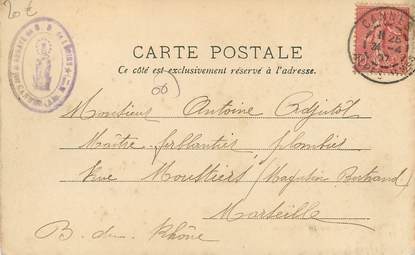 20 €
CARTE POSTALE
Ce côté est exclusivement réservé à l'adresse.
(06)
CANNES
Monsieur Antoine
Maître ferblantier plombier
Rue Moustiers (Magasin Bertrand)
Marseille
B. du Rhône